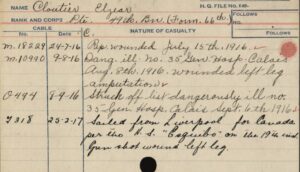 Cloutier Elzear
H.Q. FILE No. 649-
RANK AND CORPS Pte. 49th. Bn. (Form. 66th)
FOLLOWS
No.
CABLE
NATURE OF CASUALTY
FOLLOWS
No. DATE
C.
M.18229 24-7-16 Rep. wounded July 15th. 1916.
M.10990 9-8-16 Dang. ill no. 35 Gen. Hosp. Calais
Aug. 8th. 1916. wounded left leg
amputation
0494 8-9-16 Struck off list dangerously ill no.
35 Gen. Hosp. Calais Sept. 6th 1916
T318 25-2-17 Sailed from Liverpool for Canada
per the S.S. "Essequibo" on the 19th inst
Gun shot wound left leg.